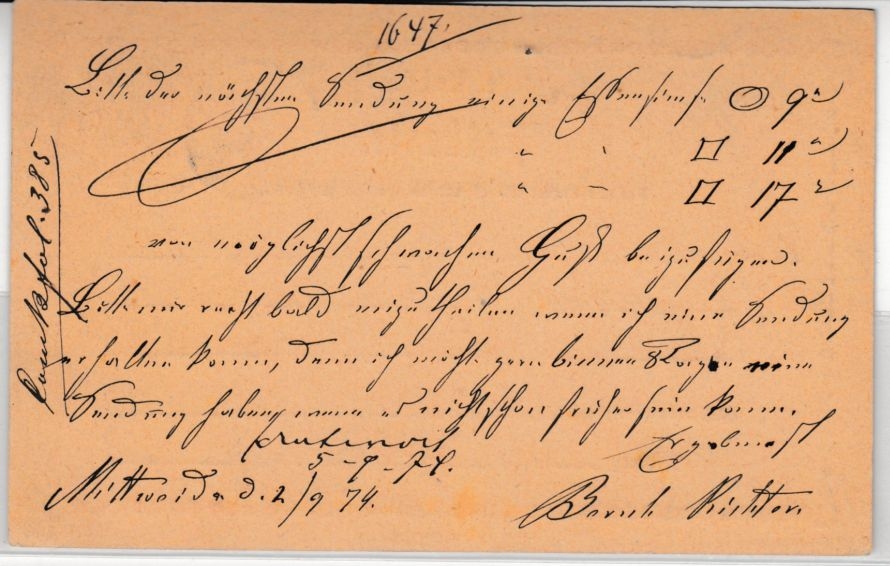 1647.
Bitte der nächsten Sendung einige Essensimse ○ 9"
" " □ 11"
" " □ 17"
von möglichst schwachem Guß beizufügen.
Bitte mir recht bald mitzutheilen wenn ich eine Sendung
erhalten kann, denn ich möchte gern binnen 8 Tagen eine
Sendung haben, wenn es nicht schon früher sein kann.
Ergebenst
5-9-74.
Mittweida d. 2/9 74.
Bernh Richter.
fol. 385